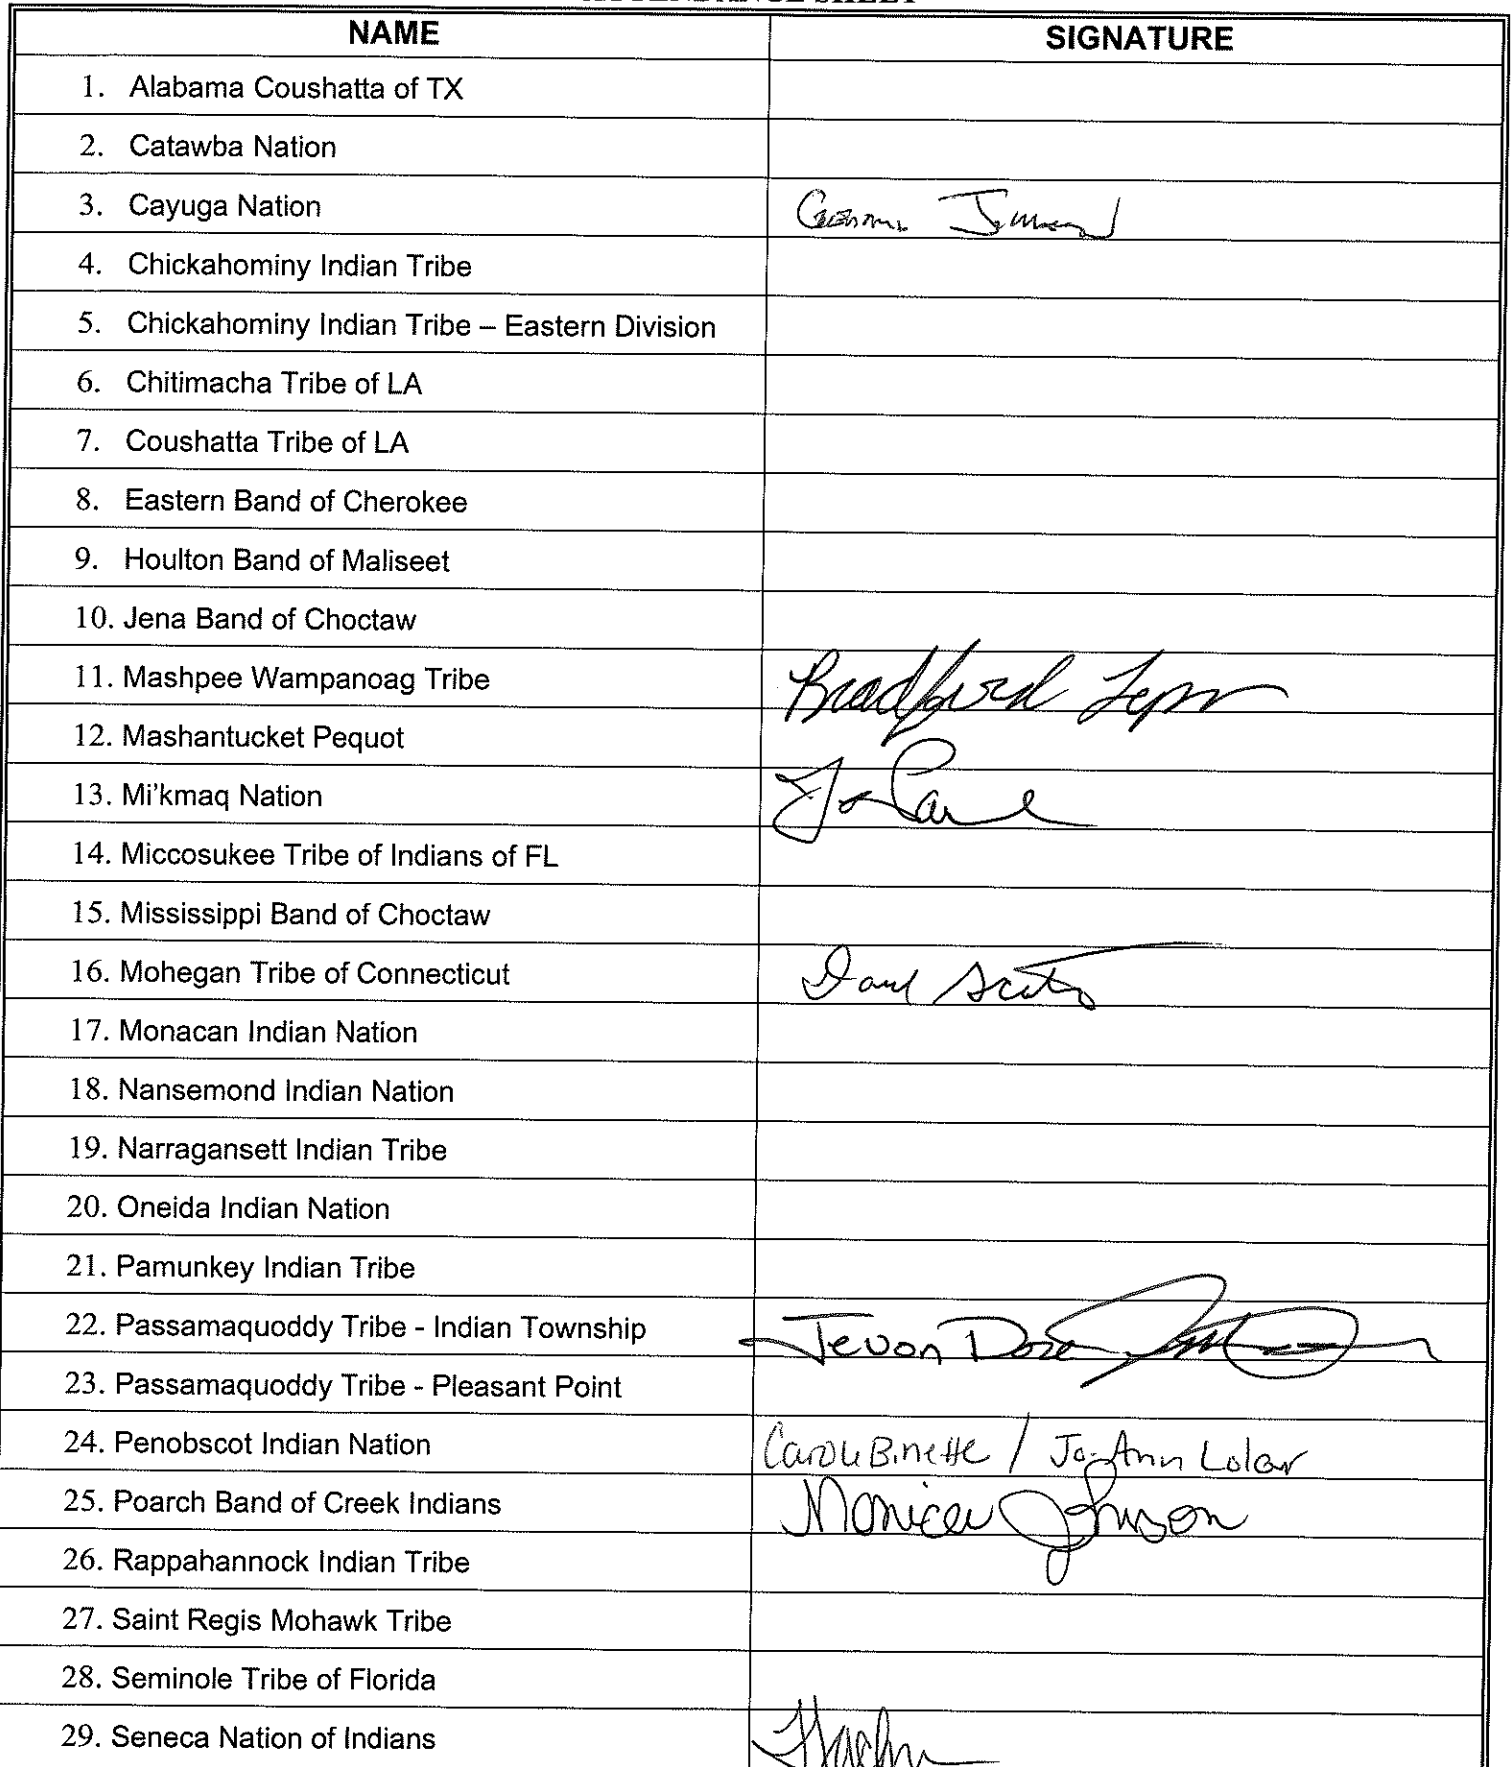 ATTENDANCE SHEET
NAME SIGNATURE
1. Alabama Coushatta of TX
2. Catawba Nation
3. Cayuga Nation
4. Chickahominy Indian Tribe
5. Chickahominy Indian Tribe – Eastern Division
6. Chitimacha Tribe of LA
7. Coushatta Tribe of LA
8. Eastern Band of Cherokee
9. Houlton Band of Maliseet
10. Jena Band of Choctaw
11. Mashpee Wampanoag Tribe Bradford
12. Mashantucket Pequot
13. Mi'kmaq Nation
14. Miccosukee Tribe of Indians of FL
15. Mississippi Band of Choctaw
16. Mohegan Tribe of Connecticut
17. Monacan Indian Nation
18. Nansemond Indian Nation
19. Narragansett Indian Tribe
20. Oneida Indian Nation
21. Pamunkey Indian Tribe
22. Passamaquoddy Tribe - Indian Township
23. Passamaquoddy Tribe - Pleasant Point
24. Penobscot Indian Nation Carole Binette / Jo-Ann Lolar
25. Poarch Band of Creek Indians Monica Johnson
26. Rappahannock Indian Tribe
27. Saint Regis Mohawk Tribe
28. Seminole Tribe of Florida
29. Seneca Nation of Indians